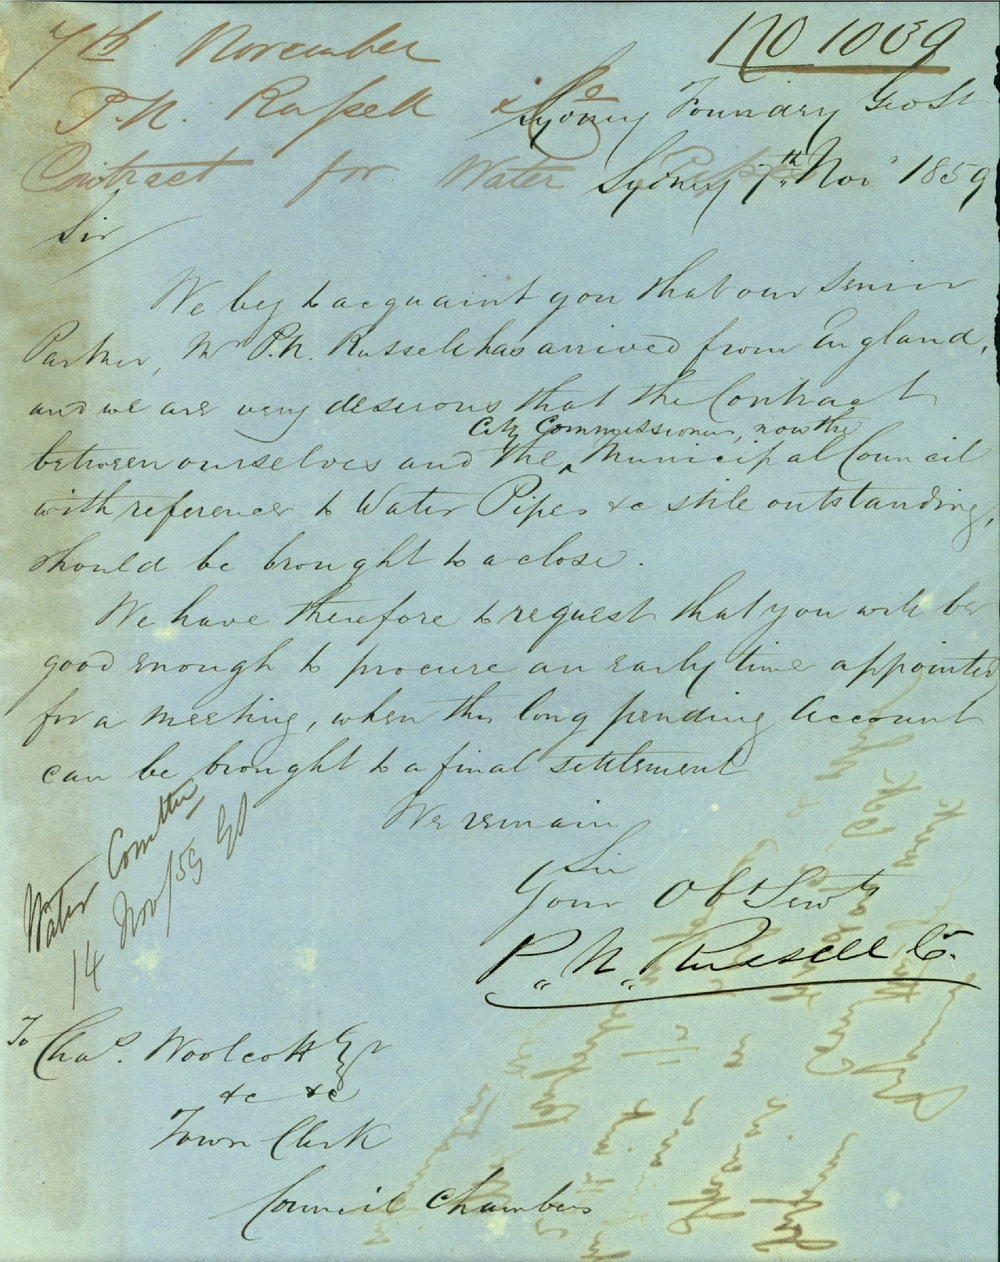 7th November
P. N. Russell & Co
Contract for Water Pipes
No 1039
Sydney Foundry Geo St
Sydney 7th Nov 1859
Sir
We beg to acquaint you that our Senior
Partner, Mr P. N. Russell has arrived from England,
and we are very desirous that the Contract
City Commissioners, now the
between ourselves and the ^ Municipal Council
with reference to Water Pipes &c still outstanding,
should be brought to a close.
We have therefore to request that you will be
good enough to procure an early time appointed
for a meeting, when this long pending Account
can be brought to a final settlement
We remain
Sir
Your Obt Servts
P. N. Russell Co.
Water Comttee
14 Nov/59
To Chas. Woolcott Esqr
&c &c
Town Clerk
Council Chambers